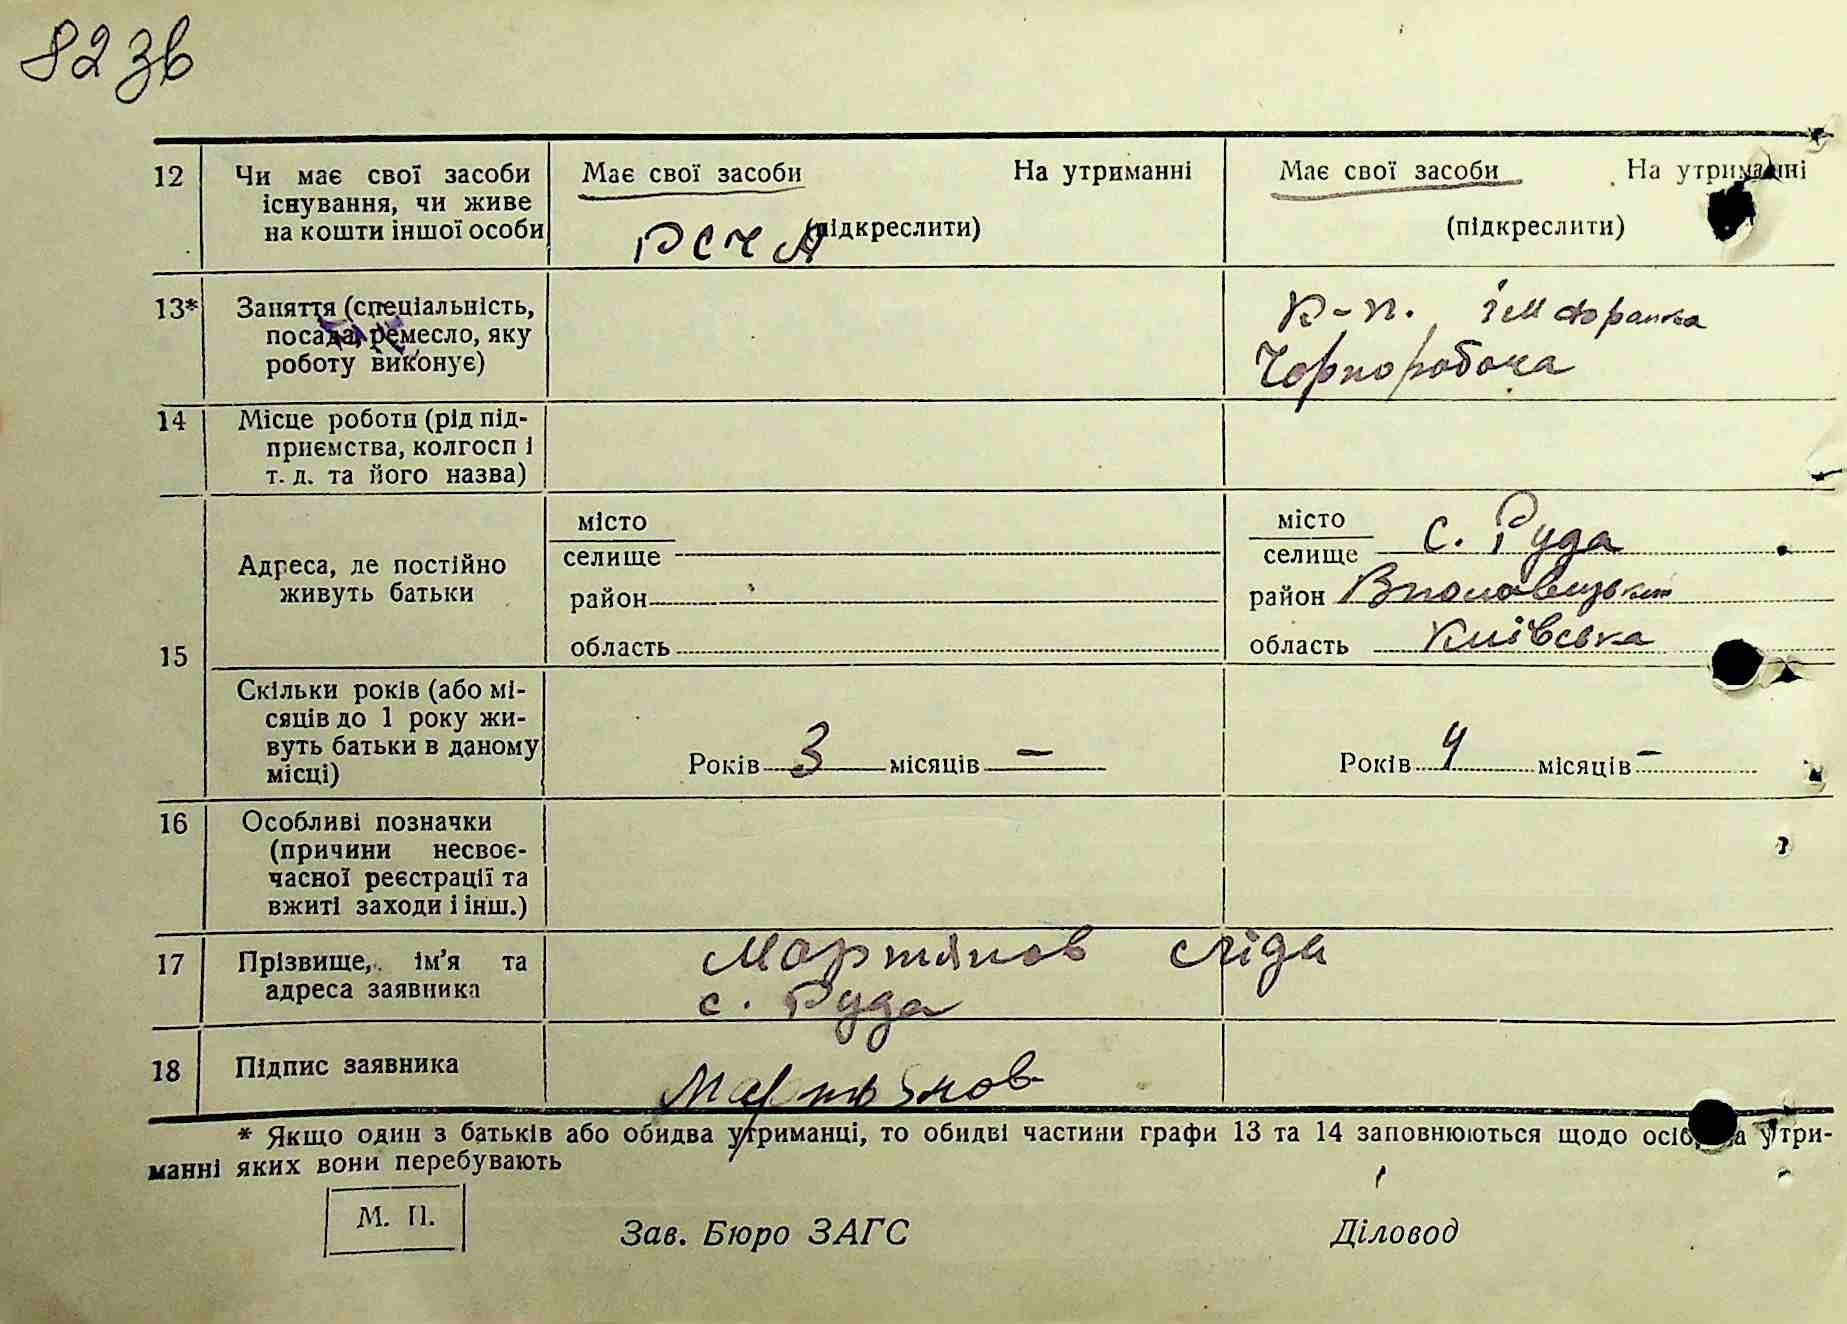 82 зв
12 Чи має свої засоби існування, чи живе на кошти іншої особи
Має свої засоби На утриманні
(підкреслити)
РСЧА
Має свої засоби На утриманні
(підкреслити)
13* Заняття (спеціальність, посада, ремесло, яку роботу виконує)
к-п. ім Франка
Чорноробоча
14 Місце роботи (рід підприємства, колгосп і т. д. та його назва)
15 Адреса, де постійно живуть батьки
місто
селище
район
область
місто
селище с. Руда
район
область Київська
Скільки років (або місяців до 1 року живуть батьки в даному місці)
Років 3 місяців —
Років 4 місяців —
16 Особливі позначки (причини несвоєчасної реєстрації та вжиті заходи і інш.)
17 Прізвище, ім'я та адреса заявника
Мартянов Ліда
с. Руда
18 Підпис заявника
Мартянов
* Якщо один з батьків або обидва утриманці, то обидві частини графи 13 та 14 заповнюються щодо осіб, на утри-
манні яких вони перебувають
М. П.
Зав. Бюро ЗАГС
Діловод